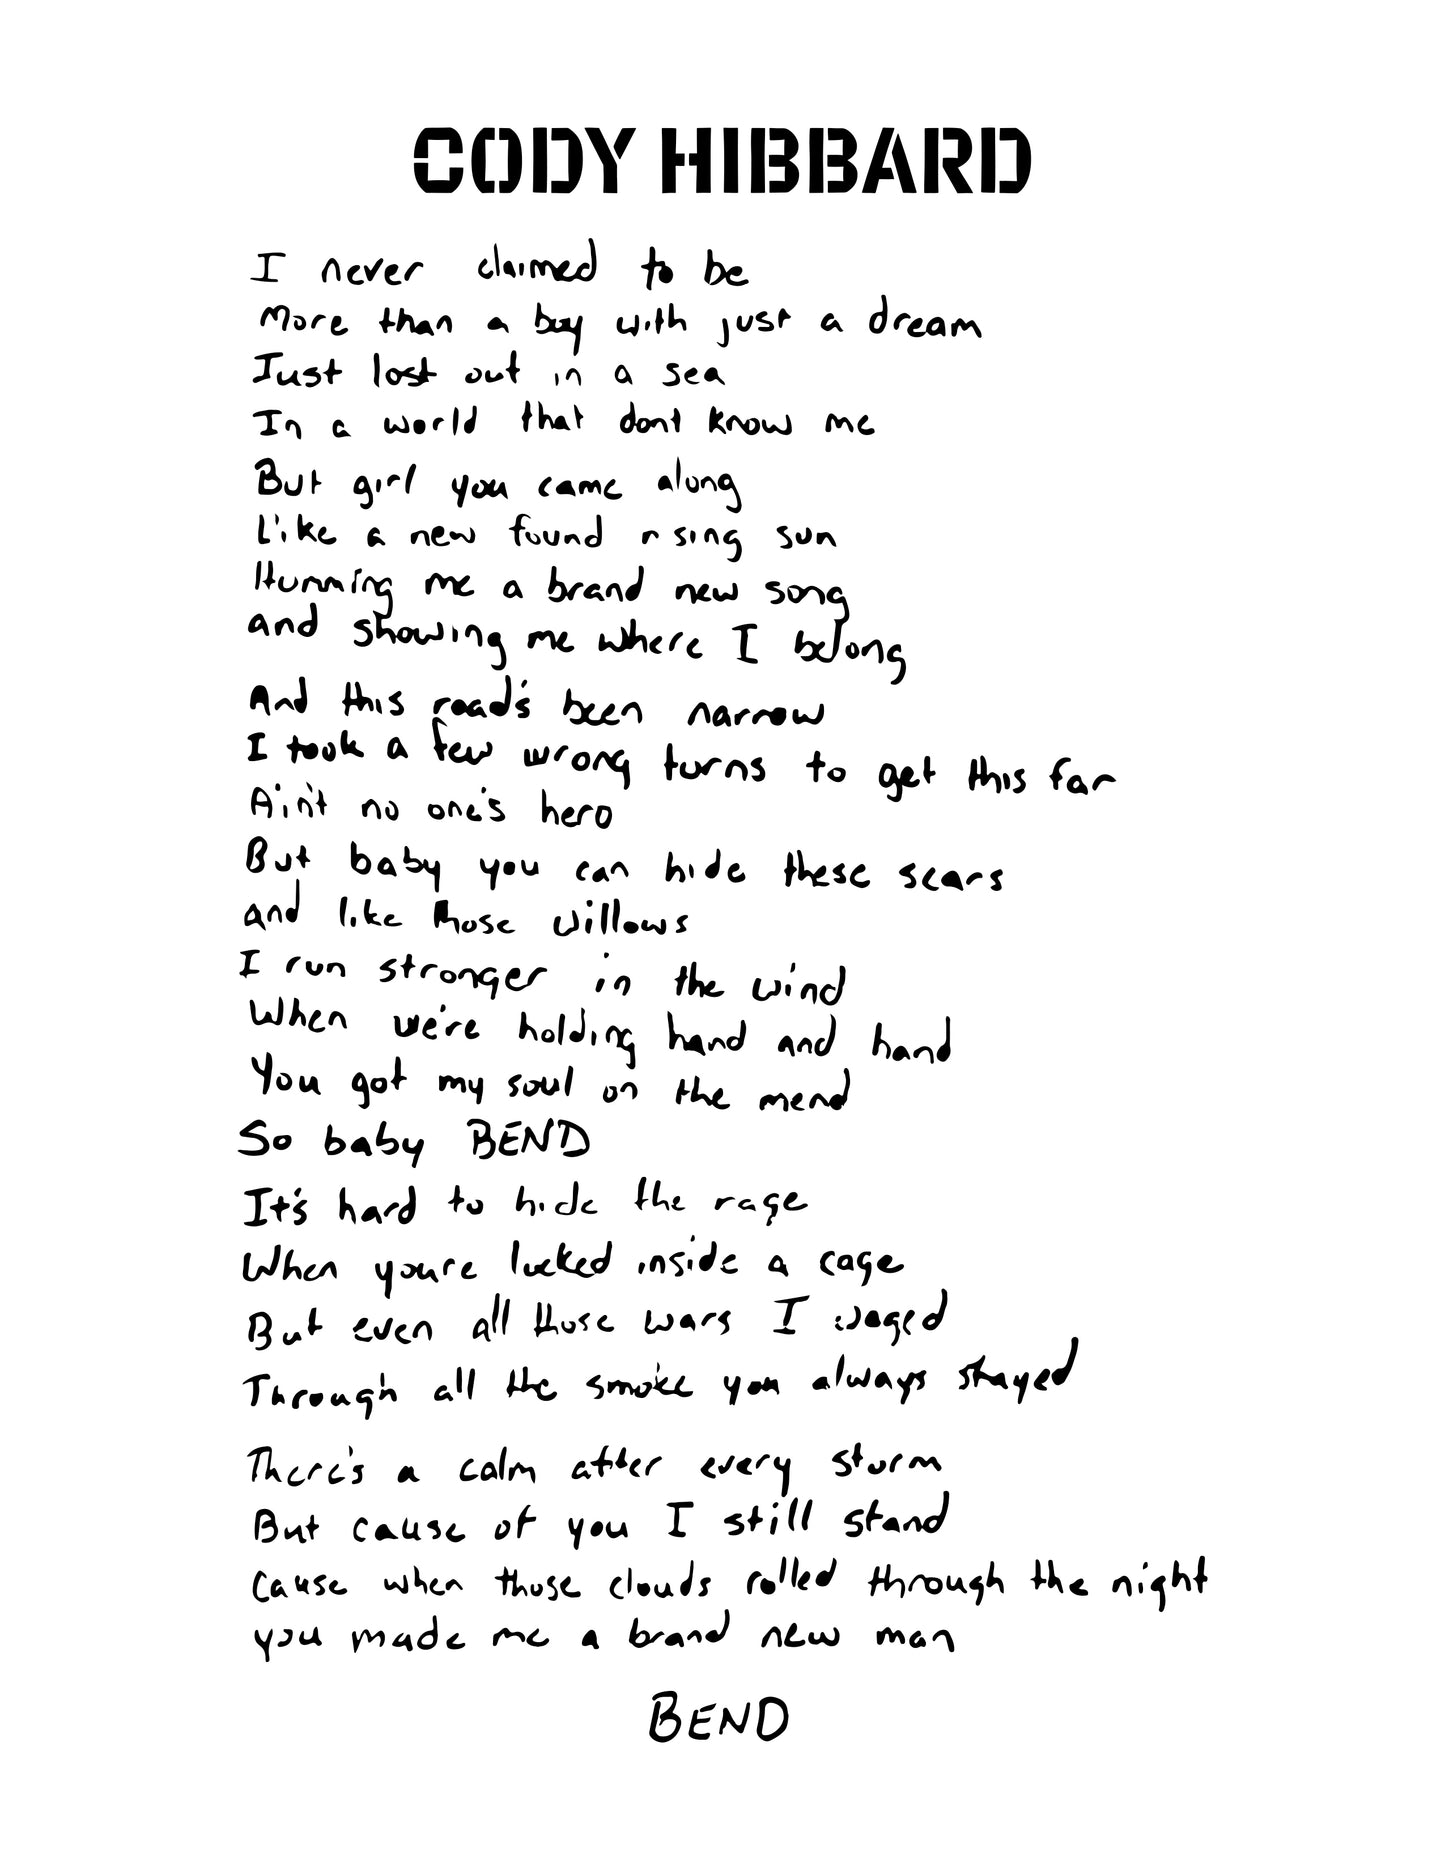 CODY HIBBARD
I never claimed to be
More than a boy with just a dream
Just lost out in a sea
In a world that dont know me
But girl you came along
Like a new found rising sun
Humming me a brand new song
and showing me where I belong
And this road's been narrow
I took a few wrong turns to get this far
Ain't no one's hero
But baby you can hide these scars
and like those willows
I run stronger in the wind
When we're holding hand and hand
You got my soul on the mend
So baby BEND
It's hard to hide the rage
When youre locked inside a cage
But even all those wars I waged
Through all the smoke you always stayed
There's a calm after every storm
But cause of you I still stand
Cause when those clouds rolled through the night
you made me a brand new man
BEND